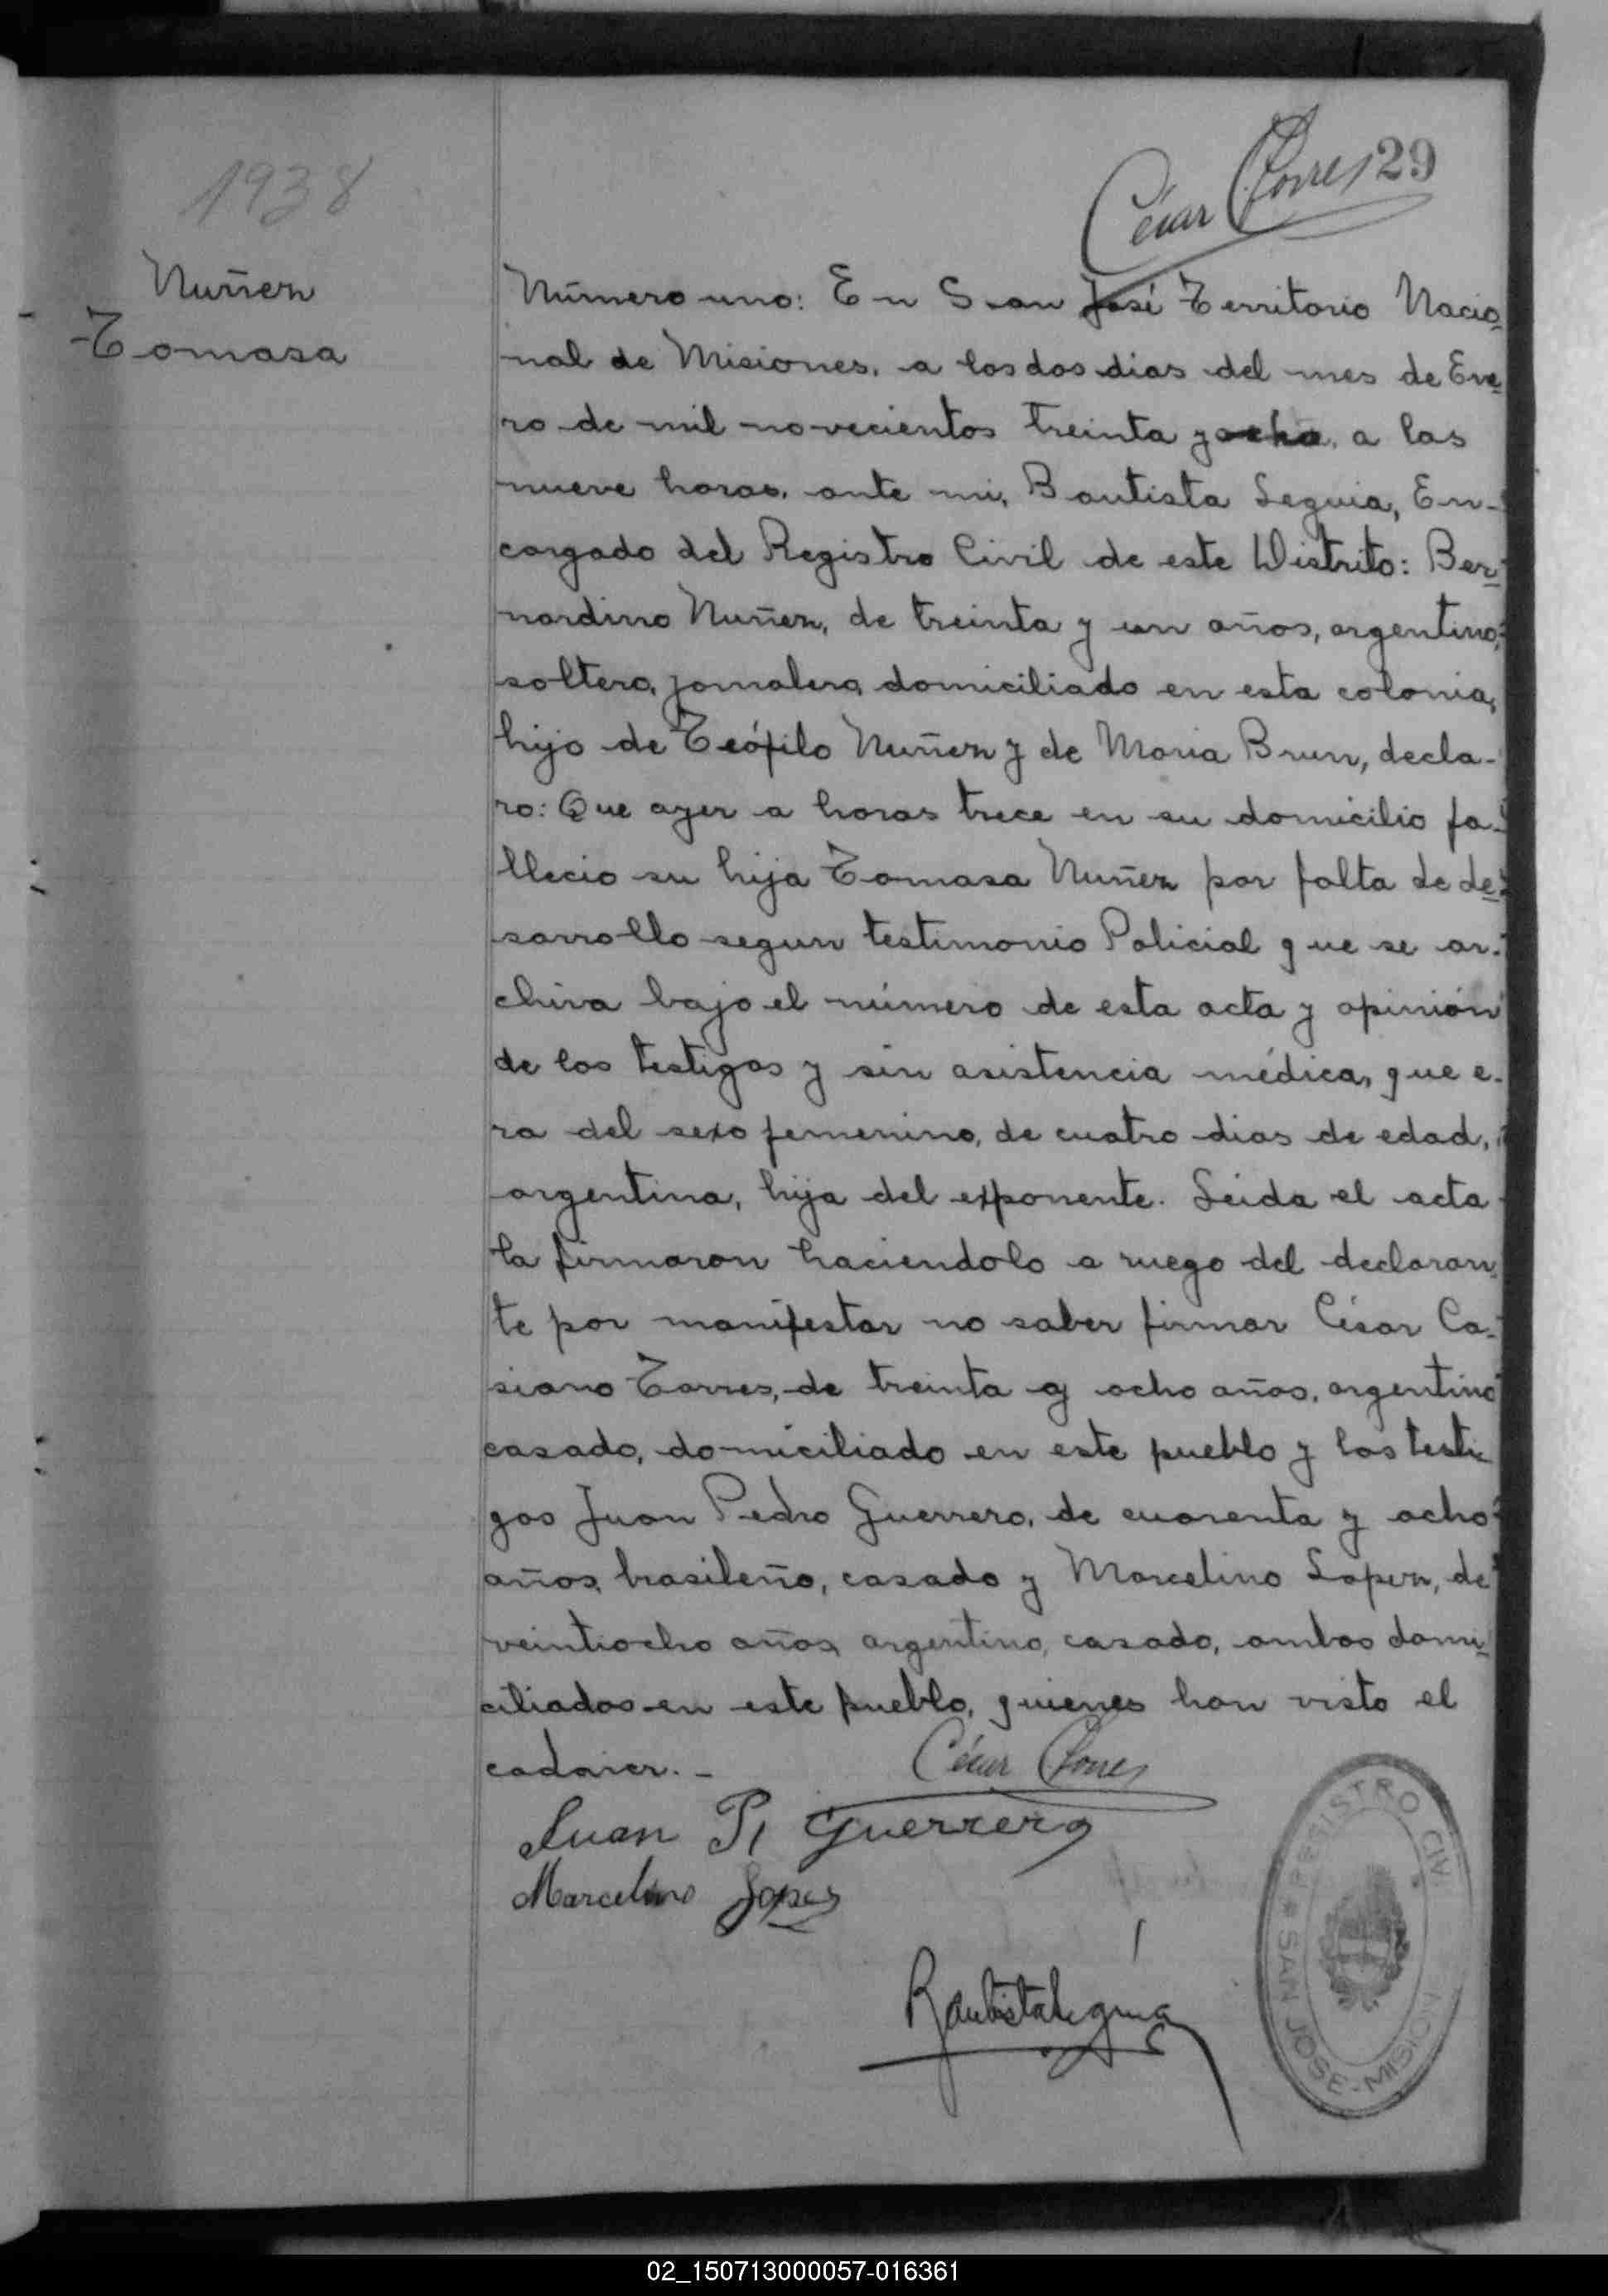 1938
César Torres
29
Nuñez
Tomasa
Número uno: En San José Territorio Nacio
nal de Misiones, a los dos dias del mes de Ene
ro de mil novecientos treinta y ocho, a las
nueve horas, ante mi, Bautista Leguia, En-
cargado del Registro Civil de este Distrito: Ber
nardino Nuñez, de treinta y un años, argentino,
soltero, jornalero, domiciliado en esta colonia,
hijo de Teófilo Nuñez y de Maria Brun, decla-
ro: Que ayer a horas trece en su domicilio fa-
llecio su hija Tomasa Nuñez por falta de de
sarrollo segun testimonio Policial que se ar-
chiva bajo el número de esta acta y opinión
de los testigos y sin asistencia médica, que e-
ra del sexo femenino, de cuatro dias de edad,
argentina, hija del exponente. Leida el acta
la firmaron haciendolo a ruego del declaran
te por manifestar no saber firmar César Ca-
siano Torres, de treinta y ocho años, argentino
casado, domiciliado en este pueblo y los testi
gos Juan Pedro Guerrero, de cuarenta y ocho
años, brasileño, casado y Marcelino Lopez, de
veintiocho años, argentino, casado, ambos domi
ciliados en este pueblo, quienes han visto el
cadaver. -
César Torres
Juan P. Guerrero
Marcelino Lopez
Bautista Leguia
REGISTRO CIVIL
SAN JOSE - MISION
02_150713000057-016361